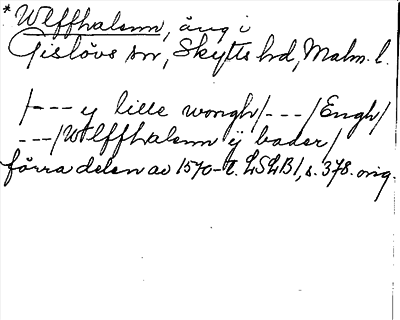 *Wlffhalsnn, äng i
Gislövs sn, Skytts hd, Malm. l.
/--- y lille wongh/---/Engh/
---/Wlffhalsnn ÿ bader/
förra delen av 1570-t. LSLB1, s. 378. orig.